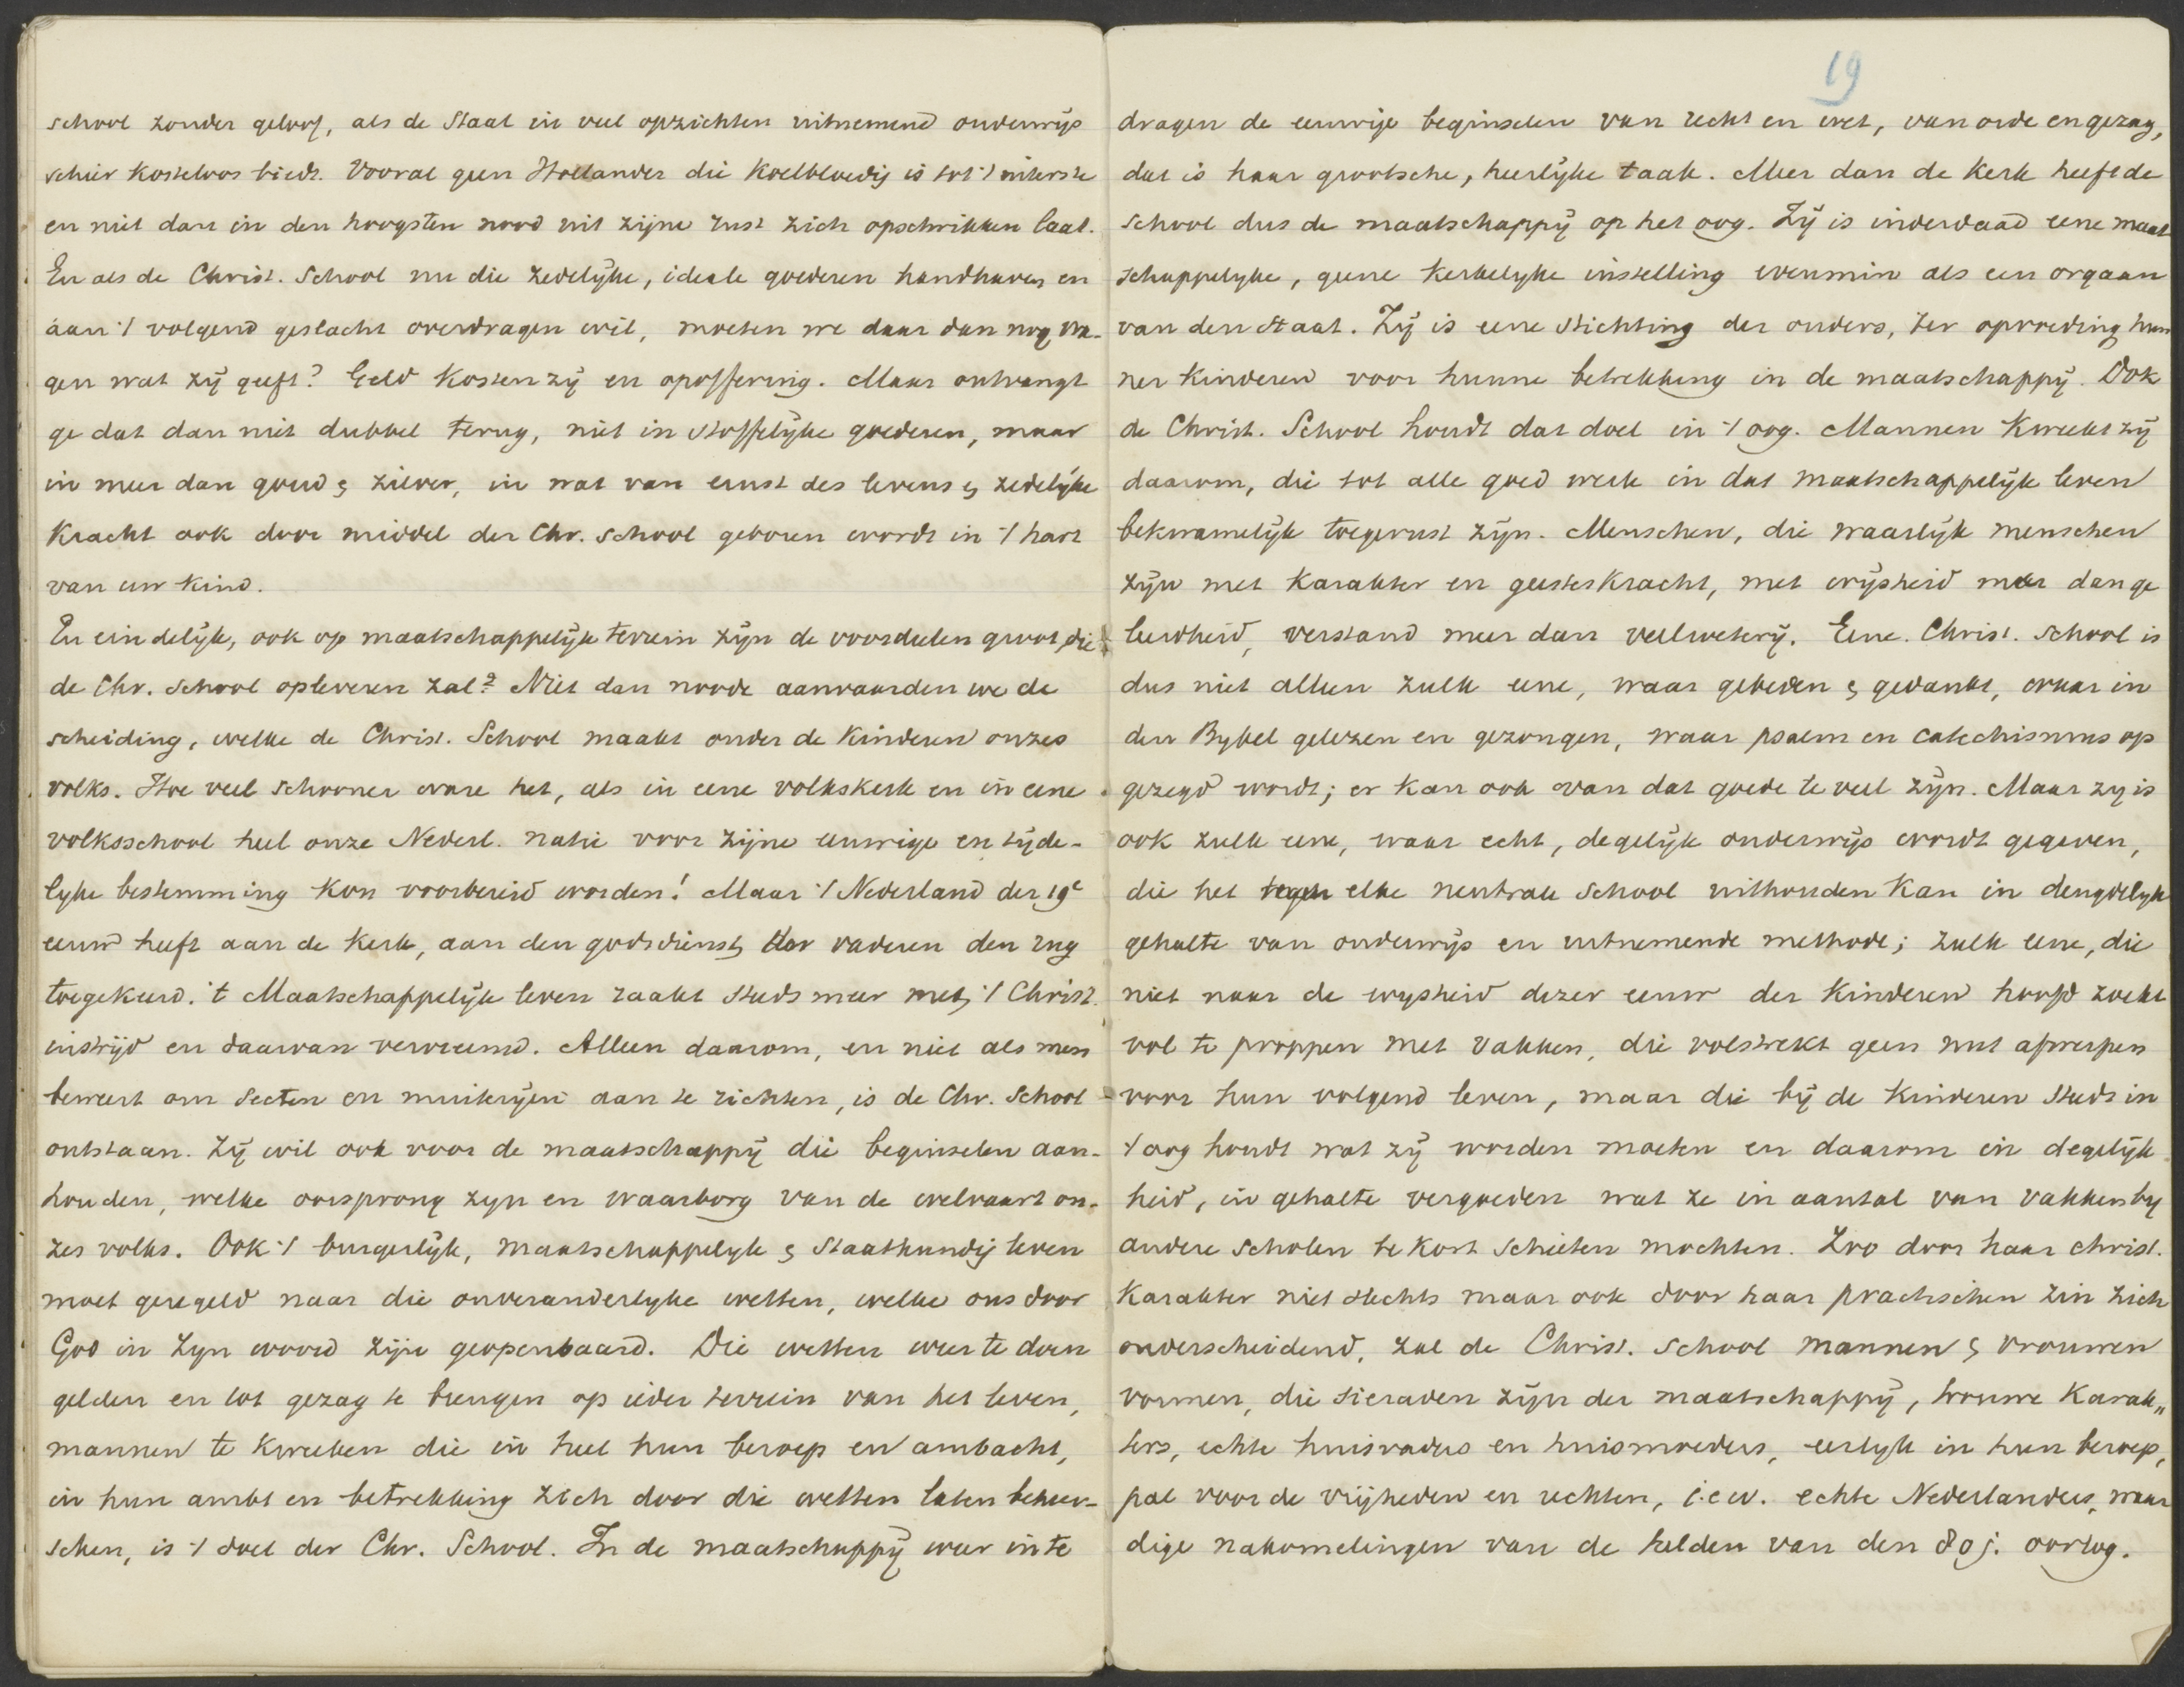 school zonder geloof, als de Staat in veel opzichten uitnemend onderwijs
schier kosteloos biedt. Vooral geen Hollander die koelbloedig is tot 't uiterste
en niet dan in den hoogsten nood uit zijne rust zich opschrikken laat.
En als de Christ. School nu die zedelijke, ideale goederen handhaven en
aan 't volgend geslacht overdragen wil, moeten we daar dan nog vra-
gen wat zij geeft? Geld kosten zij en opoffering. Maar ontvangt
ge dat dan niet dubbel terug, niet in stoffelijke goederen, maar
in meer dan goud & zilver, in wat van ernst des levens & zedelijke
kracht ook door middel der Chr. school geboren wordt in 't hart
van uw kind.
En eindelijk, ook op maatschappelijk terrein zijn de voordeelen groot, die
de Chr. School opleveren zal? Niet dan noode aanvaarden we de
scheiding, welke de Christ. School maakt onder de kinderen onzes
volks. Hoe veel schooner ware het, als in eene volkskerk en in eene
volksschool heel onze Nederl. natie voor zijne eeuwige en tijde-
lijke bestemming kon voorbereid worden! Maar 't Nederland der 19e
eeuw heeft aan de kerk, aan den godsdienst der vaderen den rug
toegekeerd. 't Maatschappelijk leven raakt steeds meer met 't Christ.
in strijd en daarvan vervreemd. Alleen daarom, en niet als men
beweert om secten en muiterijen aan te richten, is de Chr. School
ontstaan. Zij wil ook voor de maatschappij die beginselen aan-
houden, welke oorsprong zijn en waarborg van de welvaart on-
zes volks. Ook 't burgerlijk, maatschappelijk & staatkundig leven
moet geregeld naar die onveranderlijke wetten, welke ons door
God in Zijn woord zijn geopenbaard. Die wetten weer te doen
gelden en tot gezag te brengen op ieder terrein van het leven,
mannen te kweeken die in heel hun beroep en ambacht,
in hun ambt en betrekking zich door die wetten laten beheer-
schen, is 't doel der Chr. School. In de maatschappij weer in te
19
dragen de eeuwige beginselen van recht en wet, van orde en gezag,
dat is haar grootsche, heerlijke taak. Meer dan de kerk heeft de
School dus de maatschappij op het oog. Zij is inderdaad eene maat
schappelijke, geene kerkelijke instelling evenmin als een orgaan
van den Staat. Zij is eene stichting der ouders, ter opvoeding hun
ner kinderen voor hunne betrekking in de maatschappij. Ook
de Christ. School houdt dat doel in 't oog. Mannen kweekt zij
daarom, die tot alle goed werk in dat maatschappelijk leven
bekwamelijk toegerust zijn. Menschen, die waarlijk menschen
zijn met karakter en geesteskracht, met wijsheid meer dan ge
leerdheid, verstand meer dan veelweterij. Eene Christ. School is
dus niet alleen zulk eene, waar gebeden & gedankt, waar in
den Bybel gelezen en gezongen, waar psalm en catechismus op
gezegd wordt; er kan ook van dat goede te veel zijn. Maar zij is
ook zulk eene, waar echt, degelijk onderwijs wordt gegeven,
die het tegen elke neutrale school uithouden kan in deugdelijk
gehalte van onderwijs en uitnemende methode; zulk eene, die
niet naar de wijsheid dezer eeuw der kinderen hoofd zoekt
vol te proppen met vakken, die volstrekt geen nut afwerpen
voor hun volgend leven, maar die bij de kinderen steeds in
't oog houdt wat zij worden moeten en daarom in degelijk
heid, in gehalte vergoeden wat ze in aantal van vakken by
andere scholen te kort schieten mochten. Zoo door haar christ.
karakter niet slechts maar ook door haar practischen zin zich
onderscheidend, zal de Christ. School mannen & vrouwen
vormen, die sieraden zijn der maatschappij, trouwe karak„
ters, echte huisvaders en huismoeders, eerlijk in hun beroep,
pal voor de vrijheden en rechten, i.e.w. echte Nederlanders, waar
dige nakomelingen van de helden van den 80 j. oorlog.